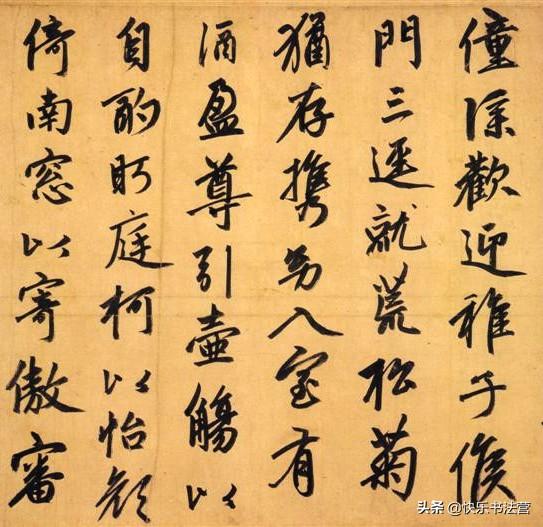 僮僕歡迎稚子候
門三逕就荒松菊
猶存携幼入室有
酒盈尊引壺觴以
自酌眄庭柯以怡顔
倚南窓以寄傲審
头条 @快乐书法营